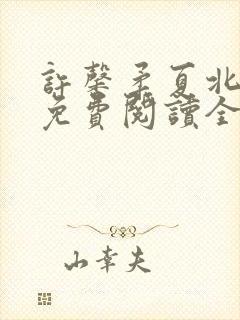 許馨矛夏北
免費閱讀全
山幸夫